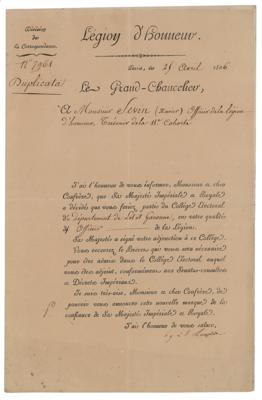 Division
de
la Correspondance.
Légion d'Honneur.
N.° 7961
Duplicata
Paris, le 25 Avril 1806
Le Grand-Chancelier,
A Monsieur Sevin (Xavier) Officier de la Légion
d'honneur, Trésorier de la 11.e Cohorte
J'ai l'honneur de vous informer, Monsieur et cher
Confrère, que Sa Majesté Impériale et Royale
a décidé que vous feriez partie du Collége Electoral
du département de Lot et Garonne, en votre qualité
d'Officier de la Légion.
Sa Majesté a signé votre adjonction à ce Collége.
Vous recevrez le Brevet qui vous sera nécessaire
pour être admis dans le Collége Electoral auquel
vous êtes adjoint, conformément aux Senatus-consultes
et Décrets Impériaux.
Je suis très-aise, Monsieur et cher Confrère, de
pouvoir vous annoncer cette nouvelle marque de la
confiance de Sa Majesté Impériale et Royale.
J'ai l'honneur de vous saluer,